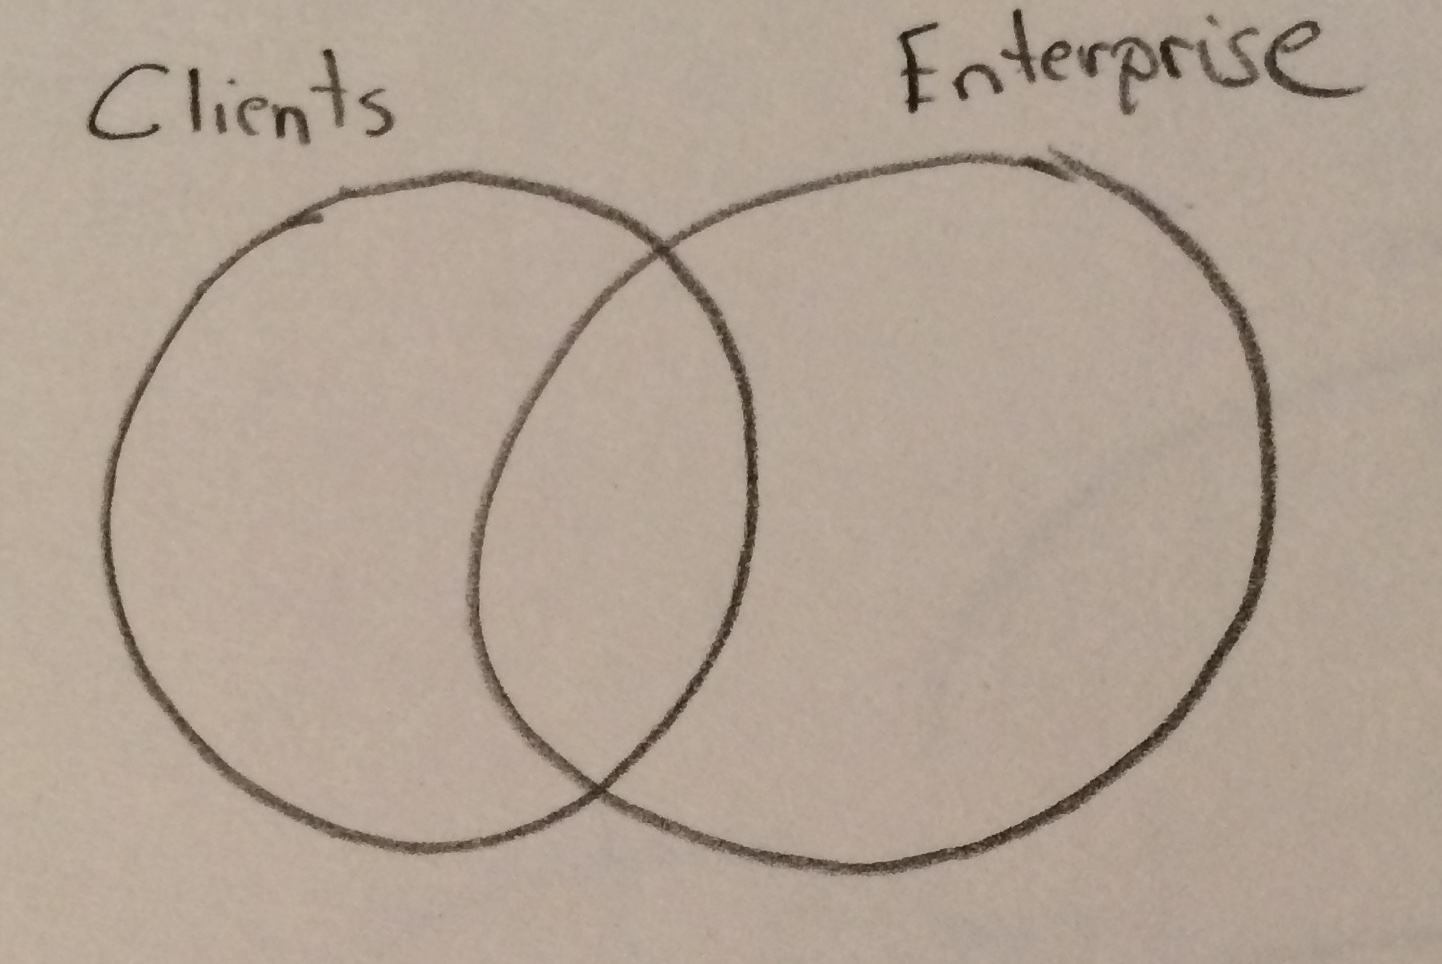 Clients
Enterprise